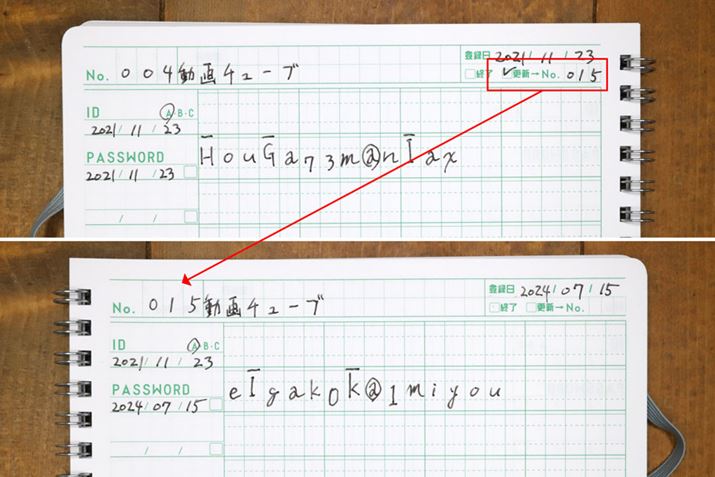 登録日 2021/11/23
No. 004 動画チューブ
□終了 ✓更新→No. 015
ID Ⓐ・B・C
2021/11/23
PASSWORD HouGa73m@nIax
2021/11/23
/ /
登録日 2024/07/15
No. 015 動画チューブ
□終了 □更新→No.
ID Ⓐ・B・C
2021/11/23
PASSWORD eIgakok@1miyou
2024/07/15
/ /